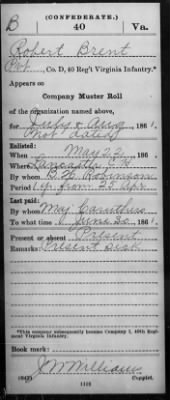 (CONFEDERATE.)
B 40 Va.
Robert Brent
Pvt, Co. D, 40 Reg't Virginia Infantry.*
Appears on
Company Muster Roll
of the organization named above,
for July & Aug, 1861.
(not dated)
Enlisted:
When May 22, 186
Where Lancaster
By whom B. H. Robinson
Period 1 yr from 25 Apr
Last paid:
By whom Maj Caruthers
To what time June 30, 1861.
Present or absent Present
Remarks: Present Sick
*This company subsequently became Company I, 40th Regiment Virginia Infantry.
Book mark:
J W William
(642) Copyist.